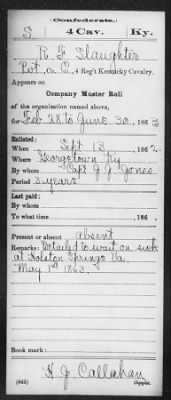 Confederate.
S 4 Cav. Ky.
R. F. Slaughter
Pvt, Co. C, 4 Reg't Kentucky Cavalry.
Appears on
Company Muster Roll
of the organization named above,
for Feb 28 to June 30, 1863
Enlisted:
When Sept 13, 1862
Where Georgetown Ky
By whom Capt J. J. Jones
Period 3 years
Last paid:
By whom
To what time , 186 .
Present or absent absent
Remarks: Detailed to wait on sick
at Holston Springs Va.
May 1st 1863.
Book mark:
H. J. Callahan
(642) Copyist.